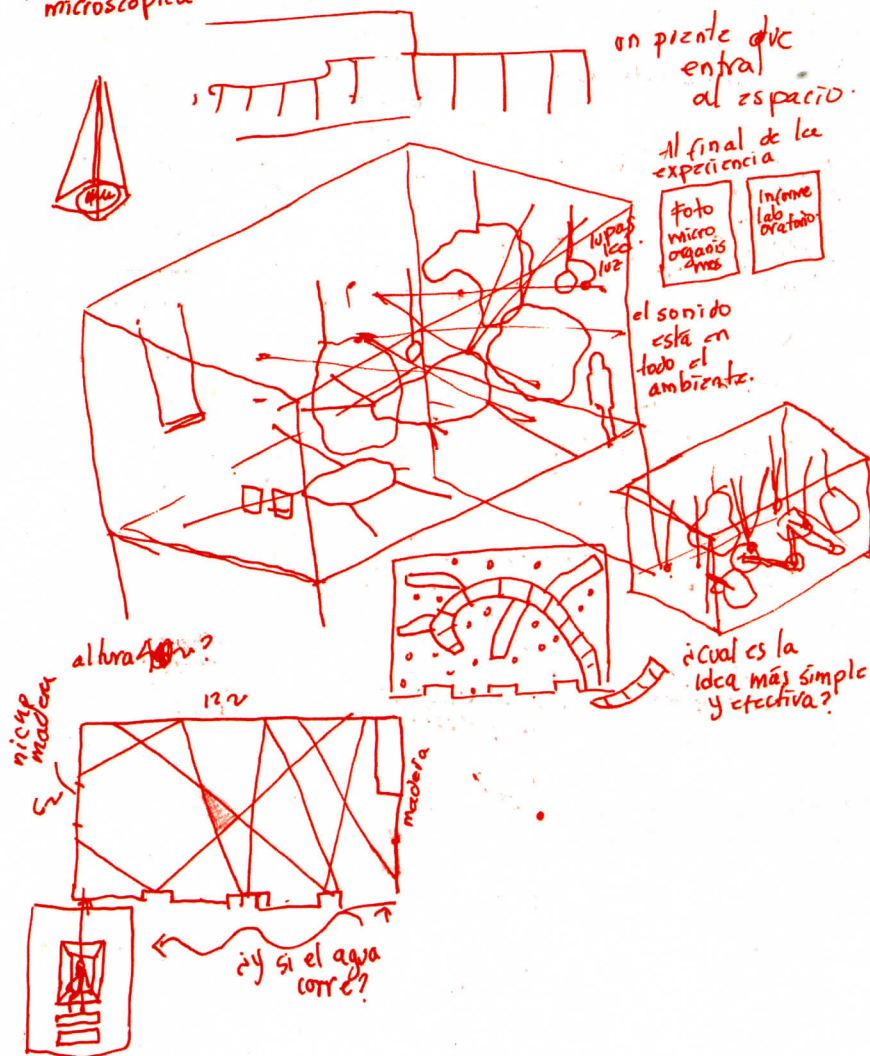 microscópica
un puente que
entra
al espacio.
Al final de la
experiencia
Foto
micro
organis
mos
Informe
lab
oratorio.
lupas
luz
el sonido
está en
todo el
ambiente.
altura ?
¿cual es la
idea más simple
y efectiva?
12m
madera
madera
¿y si el agua
corre?